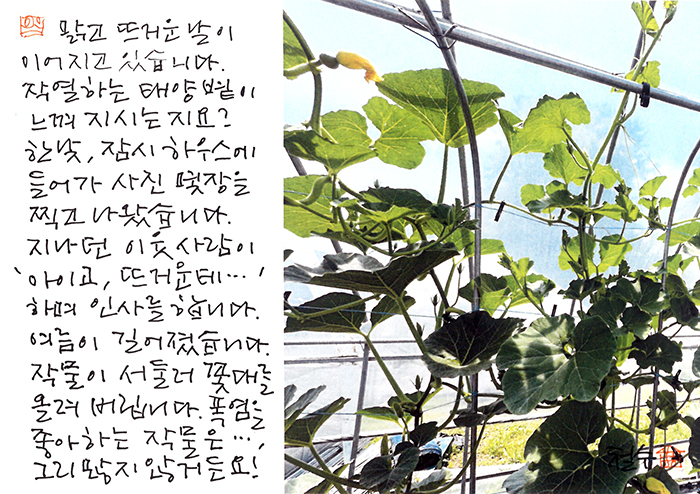 맑고 뜨거운 날이
이어지고 있습니다.
작열하는 태양볕이
느껴 지시는 지요?
한낮, 잠시 하우스에
들어가 사진 몇장을
찍고 나왔습니다.
지나던 이웃 사람이
'아이고, 뜨거운데…'
하며 인사를 합니다.
여름이 길어졌습니다.
작물이 서둘러 꽃대를
올려 버립니다. 폭염을
좋아하는 작물은…,
그리 많지 않거든요!
철수